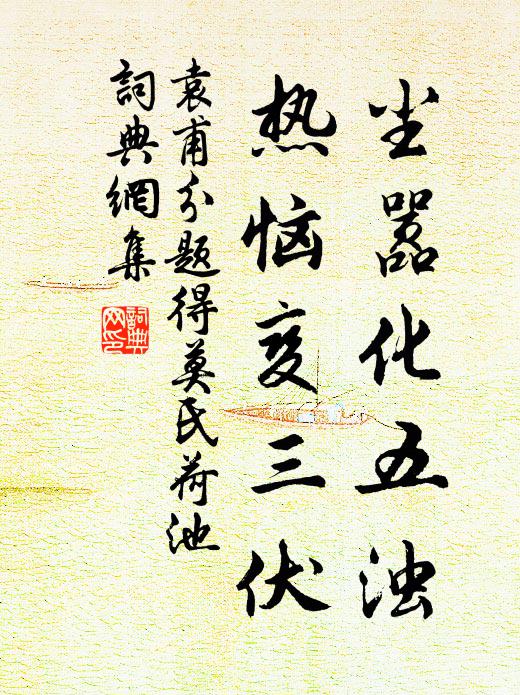 尘嚣化五浊
热恼变三伏
袁甫分题得莫氏荷池
詞典網集
詞典网印